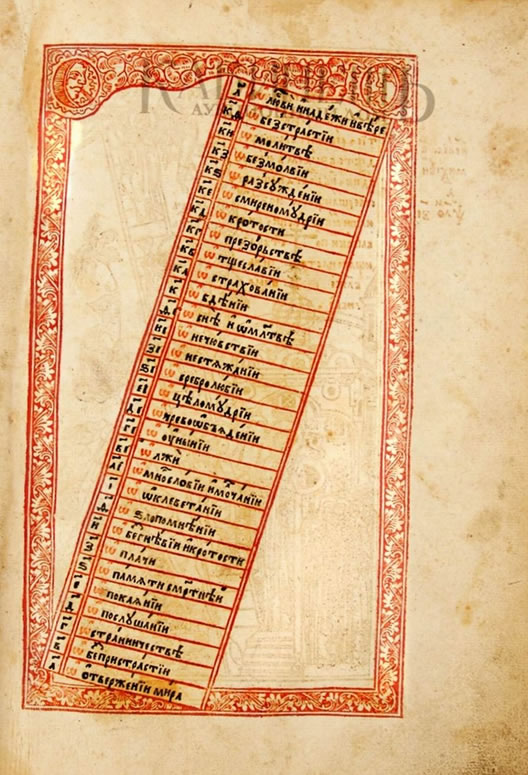 л҃ ѡ любви и надежи и вѣре
к҃ѳ ѡ безстрастїи
к҃и ѡ молитвѣ
к҃з ѡ безмолвїи
к҃ѕ ѡ разсꙋжденїи
к҃е ѡ смиреномꙋдрїи
к҃д ѡ кротости
к҃г ѡ презорьствѣ
к҃в ѡ тщеславїи
к҃а ѡ страхованїи
к҃ ѡ бдѣнїи
ѳ҃і ѡ снѣ и ѡ млтвѣ
и҃і ѡ нечювствїи
з҃і ѡ нестѧжанїи
ѕ҃і ѡ сребролюбїи
е҃і ѡ цѣломꙋдрїи
д҃і ѡ чревоѡбъѧденїи
г҃і ѡ ѹнынїи
в҃і ѡ лжи
а҃і ѡ многословїи и молчанїи
і҃ ѡ ѡклеветанїи
ѳ҃ ѡ злопомнѣнїи
и҃ ѡ безгнѣвїи и кротости
з҃ ѡ плачи
ѕ҃ ѡ памѧти смртнѣй
е҃ ѡ покаѧнїи
д҃ ѡ послꙋшанїи
г҃ ѡ странничествѣ
в҃ ѡ безпристрастїи
а҃ ѡ ѿвержении мира